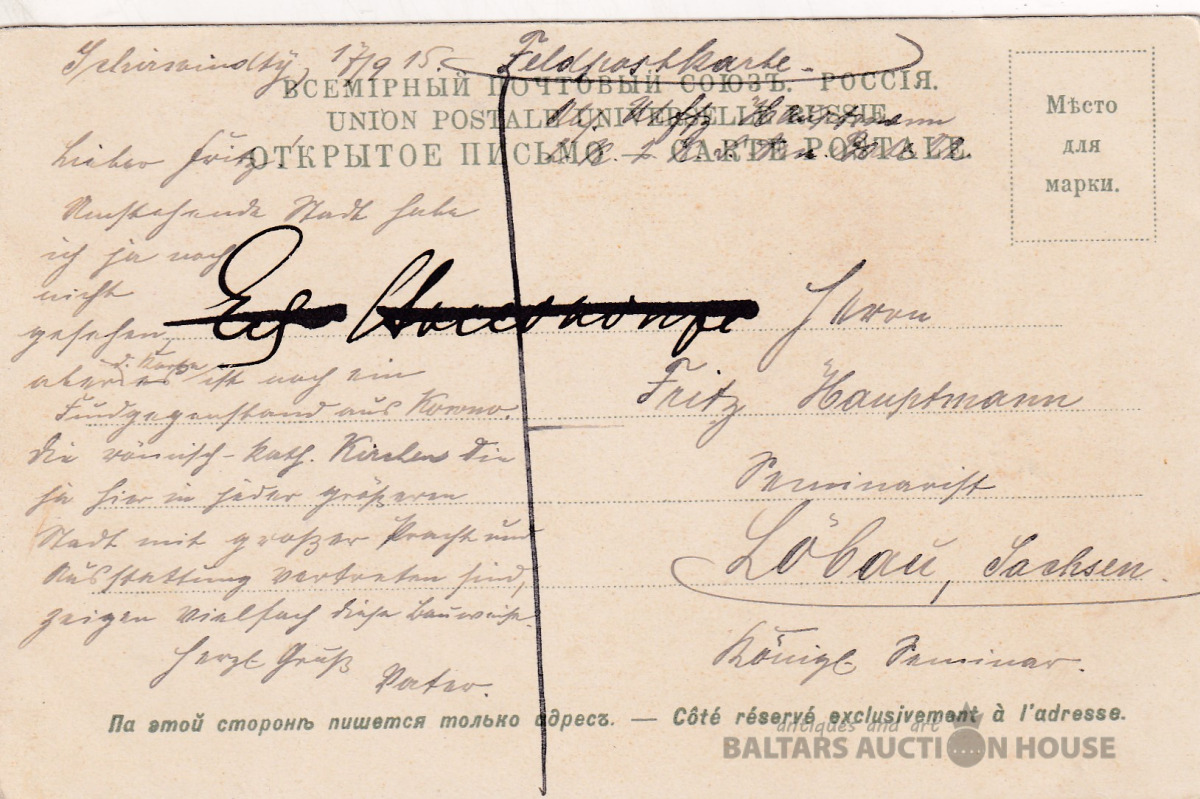 17/9 15. Feldpostkarte.
ВСЕМІРНЫЙ ПОЧТОВЫЙ СОЮЗЪ. РОССІЯ.
UNION POSTALE UNIVERSELLE RUSSIE
Hauptmann
ОТКРЫТОЕ ПИСЬМО — CARTE POSTALE
Мѣсто
для
марки.
Lieber Fritz!
Umstehende Stadt habe
ich ja noch
nicht
gesehen,
aber d. Karte ist noch ein
Fundgegenstand aus Kowno.
Die römisch-kath. Kirchen die
ja hier in jeder größeren
Stadt mit großer Pracht und
Ausstattung vertreten sind,
zeigen vielfach diese Bauweise.
Herzl. Gruß
Vater.
Herrn
Fritz Hauptmann
Seminarist
Löbau, Sachsen.
Königl. Seminar.
Па этой сторонѣ пишется только адресъ. — Côté réservé exclusivement à l'adresse.
antiques and art
BALTARS AUCTION HOUSE